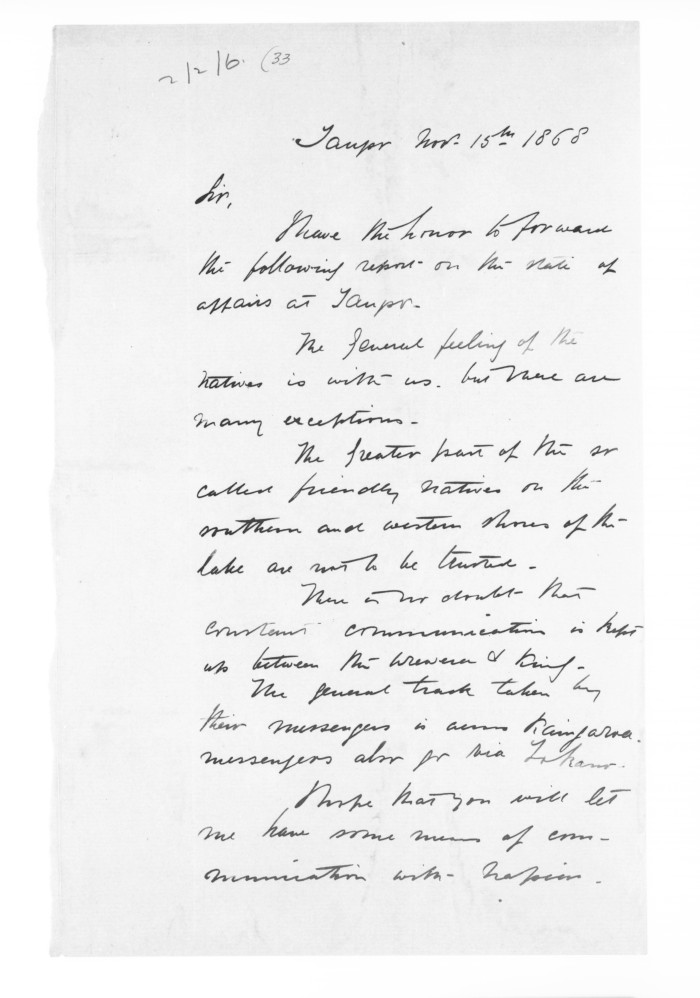 2/2/6. (33
Taupo Nov. 15th 1868
Sir,
I have the honor to forward
the following report on the state of
affairs at Taupo.
The general feeling of the
natives is with us. but there are
many exceptions.
The greater part of the so
called friendly natives on the
southern and western shores of the
lake are not to be trusted.
There is no doubt that
constant communication is kept
up between the Urewera & King.
The general track taken by
their messengers is across Kaingaroa.
messengers also go via Tokano.
I hope that you will let
me have some means of com-
munication with Napier.